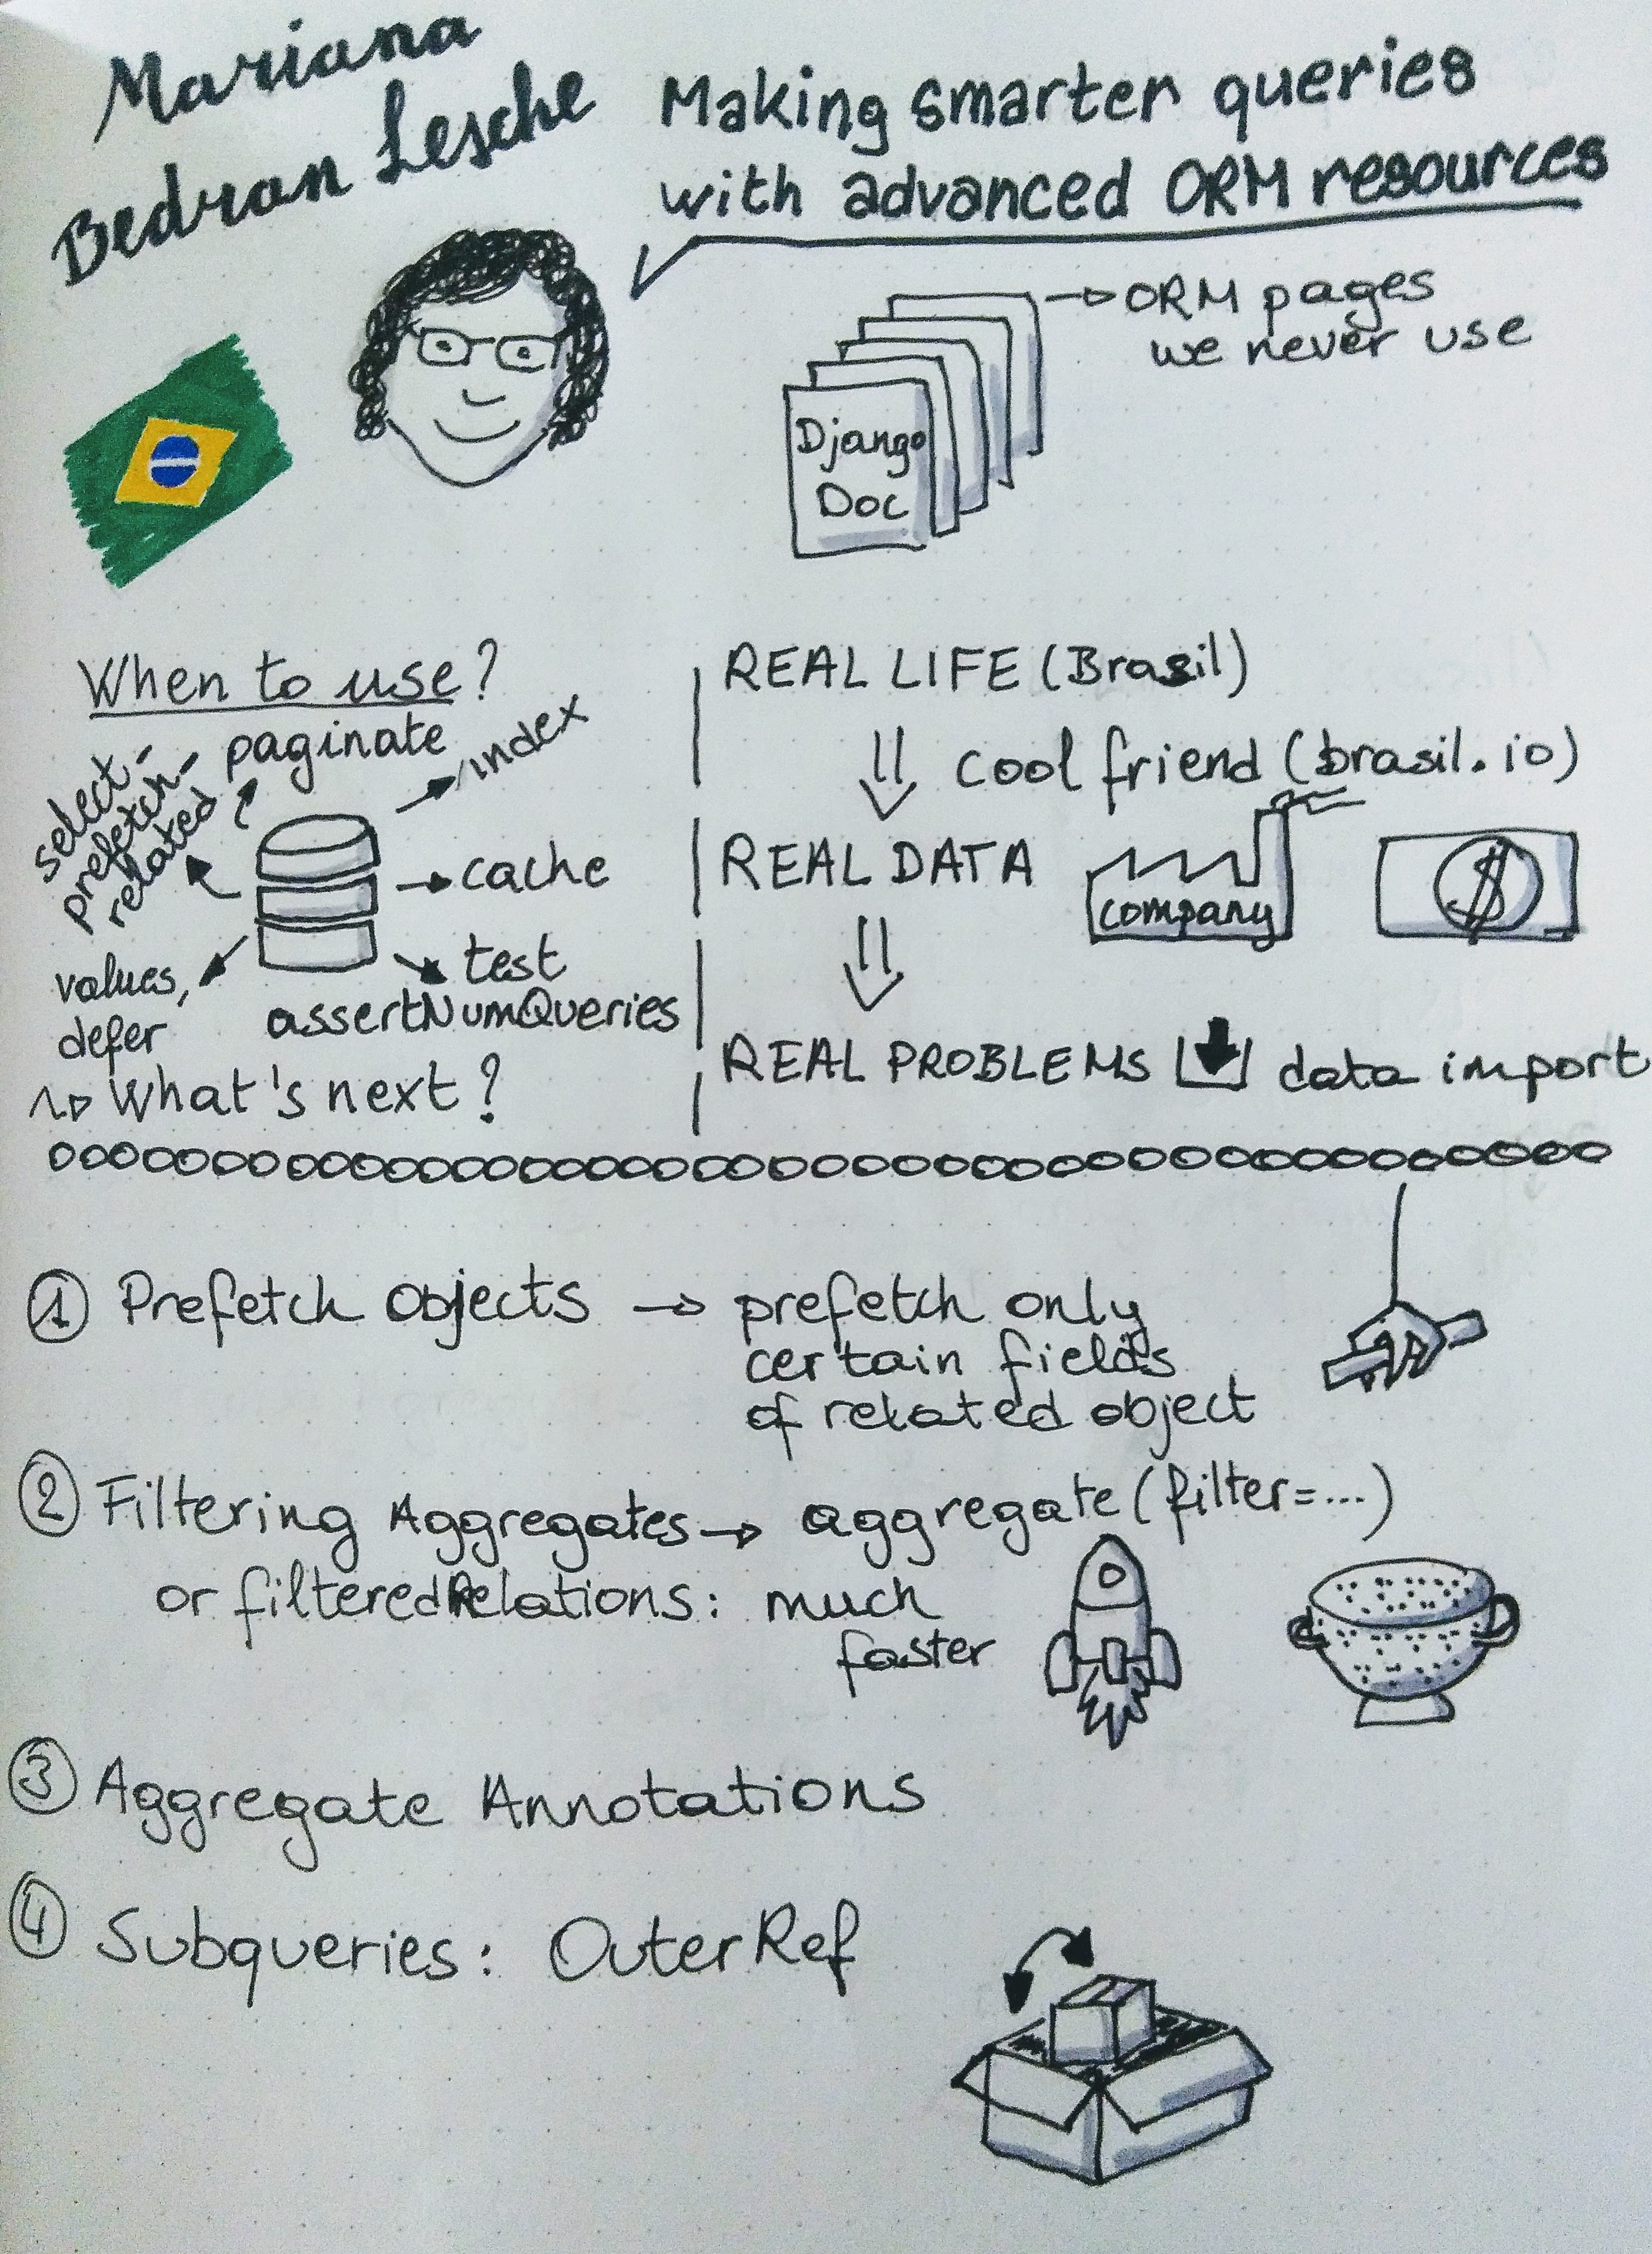 Mariana
Bedran Lesche
Making smarter queries
with advanced ORM resources
ORM pages
we never use
Django
Doc
When to use?
select-
prefetch-
related
paginate
index
cache
test
assertNumQueries
values,
defer
What's next?
REAL LIFE (Brasil)
cool friend (brasil.io)
REAL DATA
company
$
REAL PROBLEMS
data import
1 Prefetch Objects → prefetch only
certain fields
of related object
2 Filtering Aggregates → aggregate (filter=...)
or filteredRelations: much
faster
3 Aggregate Annotations
4 Subqueries: OuterRef